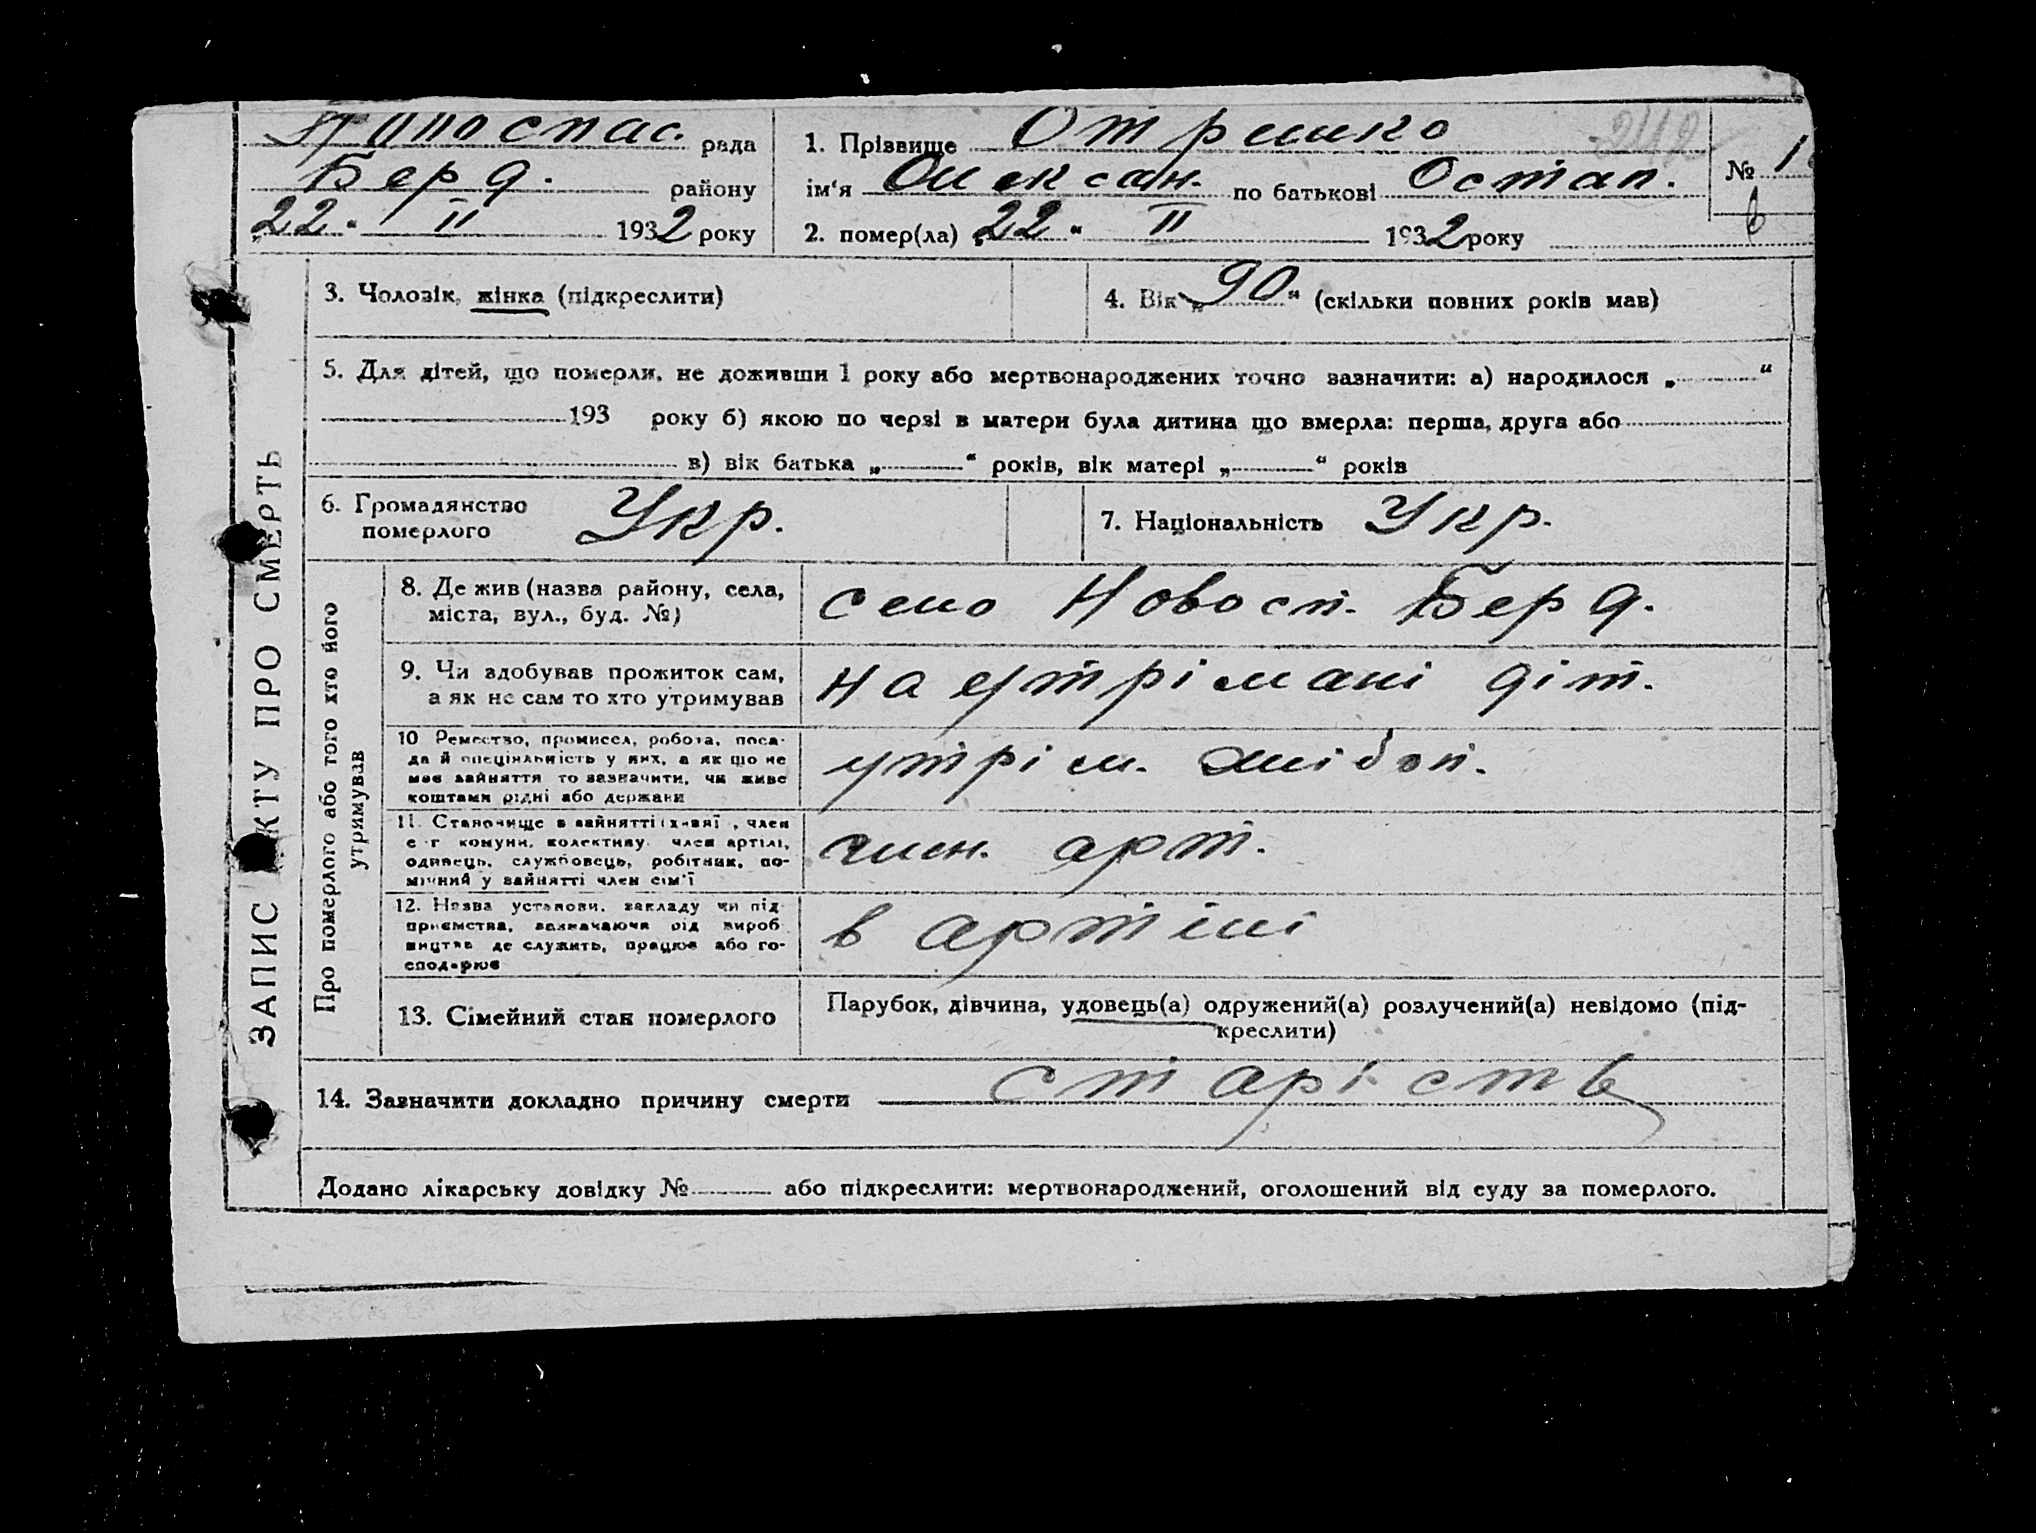 Новоспас. рада
Берд. району
„22“ II 1932 року
1. Прізвище Отрешко
ім‘я Олексан. по батькові Остап.
2. помер(ла) „22“ II 1932 року
242
№ 1
3. Чоловік, жінка (підкреслити)
4. Вік „90“ (скільки повних років мав)
5. Для дітей, що померли, не доживши 1 року або мертвонароджених точно зазначити: а) народилося „ “
193 року б) якою по черзі в матери була дитина що вмерла: перша, друга або
в) вік батька „ “ років, вік матері „ “ років
6. Громадянство
померлого
Укр.
7. Національність Укр.
ЗАПИС АКТУ ПРО СМЕРТЬ
Про померлого або того хто його
утримував
8. Де жив (назва району, села,
міста, вул., буд. №)
село Новосп. Берд.
9. Чи здобував прожиток сам,
а як не сам то хто утримував
на утрімані діт.
10 Ремество, промисел, робота, поса-
да й спеціяльність у них, а як що не
має зайняття то зазначити, чи живе
коштами рідні або держави
утрім. хлібоп.
11. Становище в зайнятті (хазяї , член
с-г комуни, колективу, член артілі,
одинець, службовець, робітник, по-
мічний у зайнятті член сім'ї
член. арт.
12. Назва установи, закладу чи під-
приємства, зазначаючи рід вироб-
ництва де служить, працює або го-
сподарює
в артілі
13. Сімейний стан померлого
Парубок, дівчина, удовець(а) одружений(а) розлучений(а) невідомо (під-
креслити)
14. Зазначити докладно причину смерти старість
Додано лікарську довідку № або підкреслити: мертвонароджений, оголошений від суду за померлого.